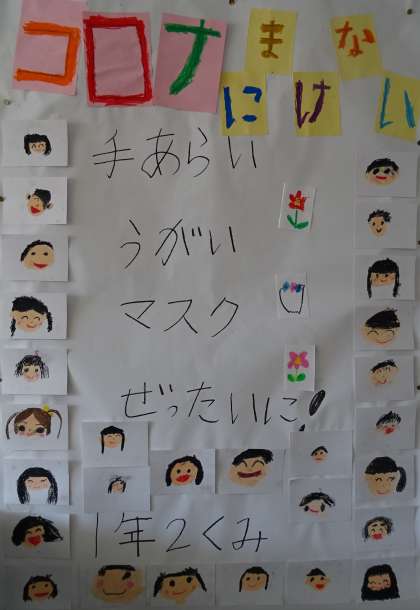 コロナにまけない
手あらい
うがい
マスク
ぜったいに!
1年2くみ